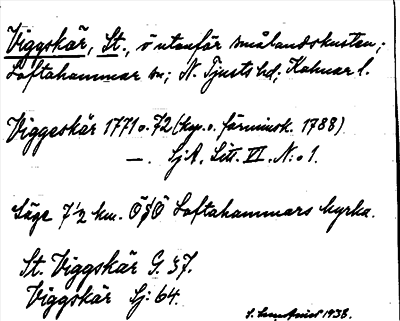 Viggskär, St., ö utanför smålandskusten;
Loftahammar sn; N. Tjusts hd; Kalmar l.
Viggeskär 1771 o. 72 (kop. o. förminsk. 1788)
—. SjA. Litt. VI. N:o 1.
Läge 7 1/2 km. ÖSÖ Loftahammars kyrka.
St. Viggskär G. 37.
Viggskär Sj: 64.
1938.